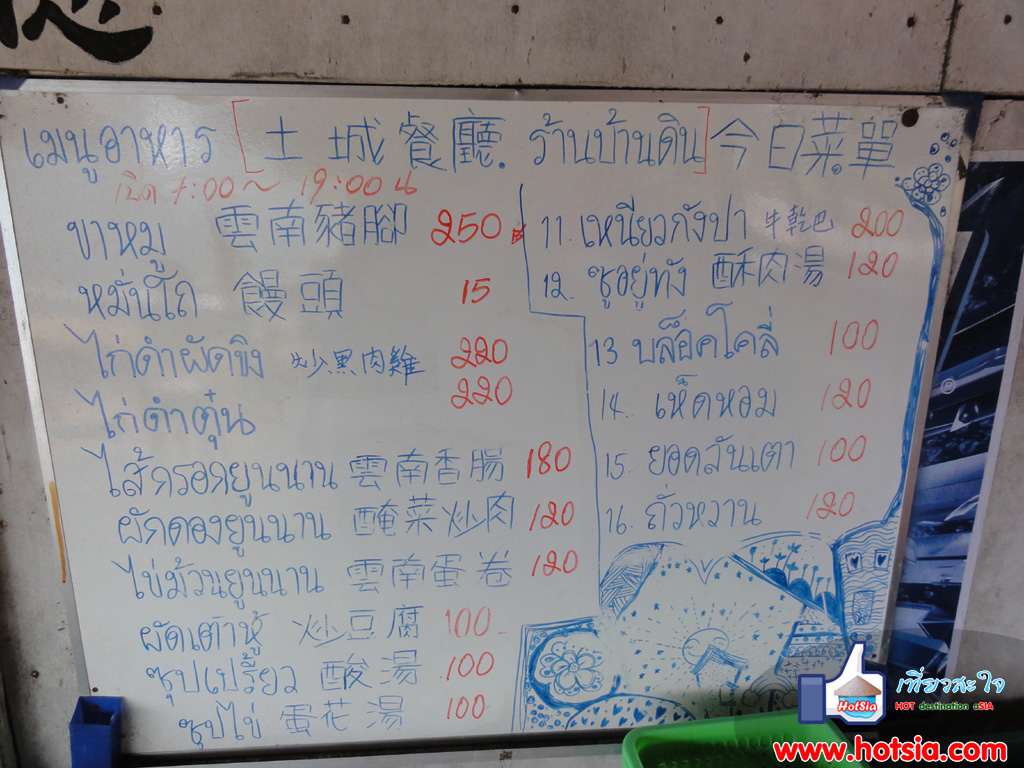 เมนูอาหาร [土城餐廳. ร้านบ้านดิน] 今日菜單
เปิด 7:00 ~ 19:00 น
ขาหมู 雲南豬腳 250
หมั่นโถ 饅頭 15
ไก่ดำผัดขิง 炒黑肉雞 220
ไก่ดำตุ๋น 220
ไส้กรอกยูนนาน 雲南香腸 180
ผักดองยูนนาน 醃菜炒肉 120
ไข่ม้วนยูนนาน 雲南蛋卷 120
ผัดเต้าหู้ 炒豆腐 100
ซุปเปรี้ยว 酸湯 100
ซุปไข่ 蛋花湯 100
11. เหนียวกังปา 牛乾巴 200
12. ซูอยู่ทัง 酥肉湯 120
13 บล็อคโคลี่ 100
14. เห็ดหอม 120
15. ยอดลันเตา 100
16. ถั่วหวาน 120
HotSia เที่ยวสะใจ
HOT destination aSIA
www.hotsia.com